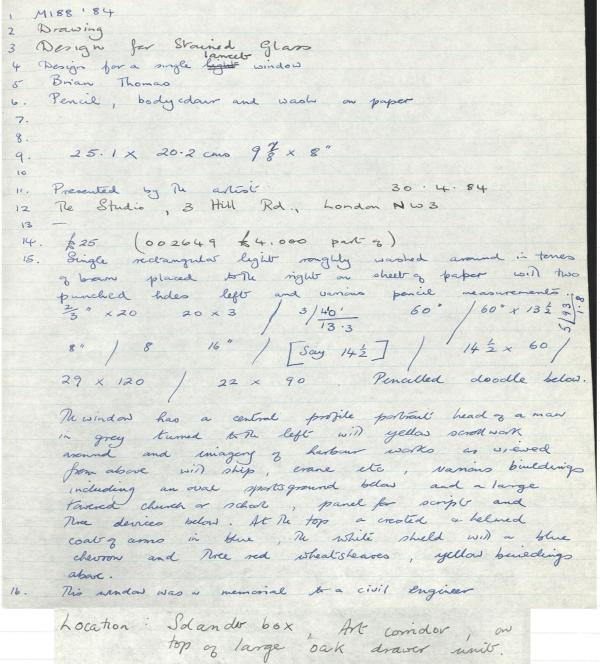 1 M188 '84
2 Drawing
3 Design for Stained Glass
4 Design for a single lancet window
5 Brian Thomas
6. Pencil, bodycolour and wash on paper
7.
8.
9. 25.1 x 20.2 cms 9 7/8 x 8"
10
11. Presented by the artist 30.4.84
12 The Studio, 3 Hill Rd., London NW3
13 —
14. £25 (002649 £4.000 part of)
15. Single rectangular light roughly washed around in tones
of brown placed to the right on sheet of paper with two
punched holes left and various pencil measurements.
2/3" x 20 20 x 3 / 3/40' 13.3 60" / 60" x 13 1/2 / 5/93 1.8
8" / 8 16" / [Say 14 1/2] / 14 1/2 x 60 /
29 x 120 / 22 x 90. Pencilled doodle below.
The window has a central profile portrait head of a man
in grey turned to the left with yellow scrollwork
around and imagery of harbour works as viewed
from above with ship, crane etc, various buildings
including an oval sportsground below and a large
towered church or school, panel for script and
three devices below. At the top a crested & helmed
coat of arms in blue, the white shield with a blue
chevron and three red wheatsheaves, yellow buildings
above.
16. This window was a memorial to a civil engineer
Location: Solander box, Art corridor, on
top of large oak drawer unit.